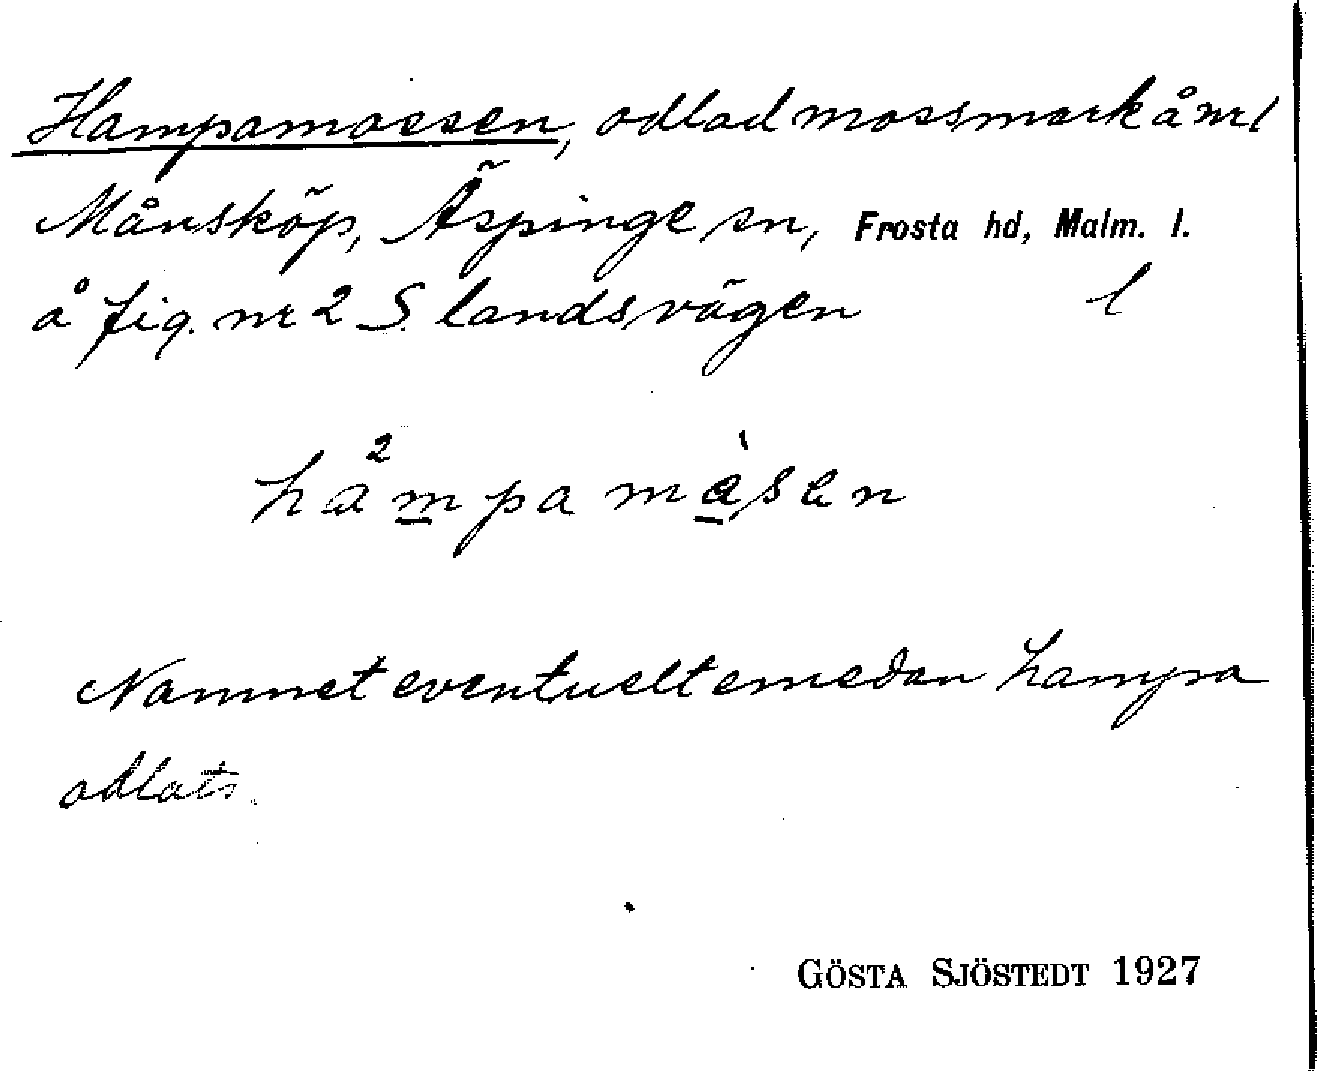 Hampamossen, odlad mossmark å nr 1
Månsköp, Äspinge sn, Frosta hd, Malm. l.
å fig. nr 2 S. landsvägen l
Namnet eventuelt emedan hampa
odlats.
GÖSTA SJÖSTEDT 1927